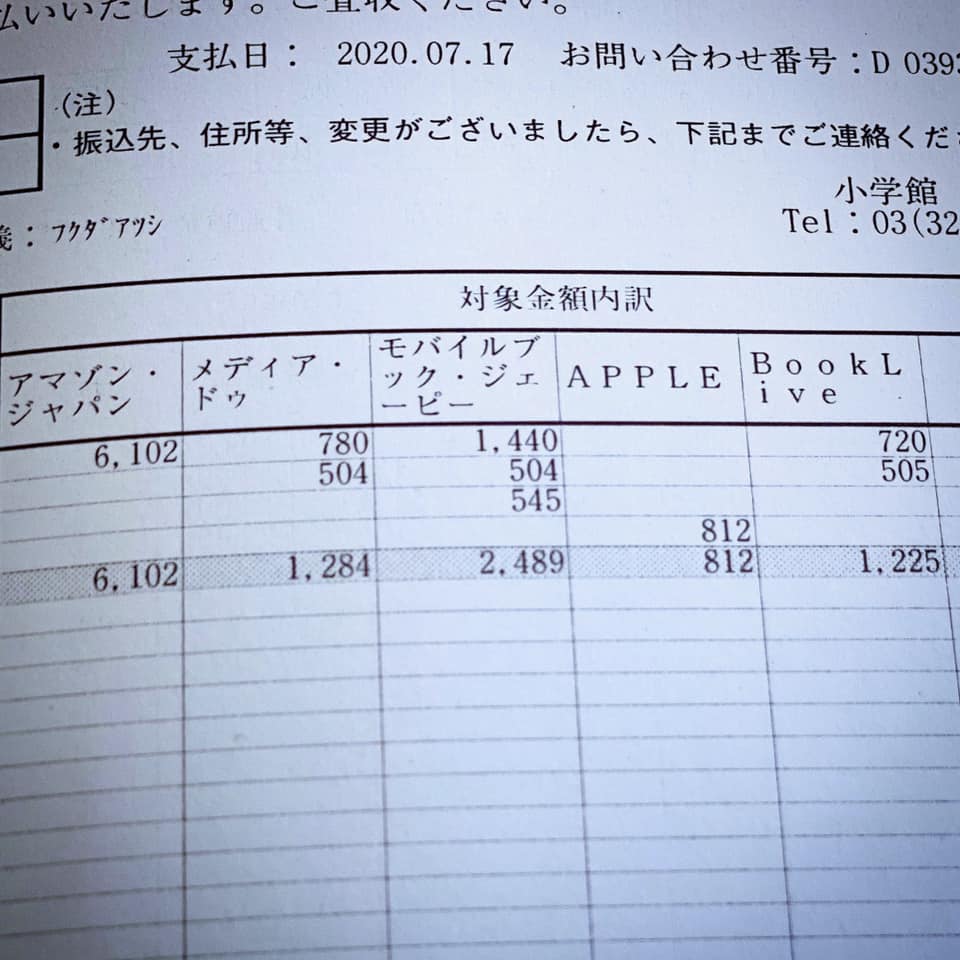 払いいたします。ご査収ください。
支払日： 2020.07.17 お問い合わせ番号：D 0393
(注)
・振込先、住所等、変更がございましたら、下記までご連絡くださ
小学館
Tel：03(32
義：ﾌｸﾀﾞｱﾂｼ
対象金額内訳
アマゾン・
ジャパン
メディア・
ドゥ
モバイルブ
ック・ジェ
ーピー
ＡＰＰＬＥ
ＢｏｏｋＬ
ｉｖｅ
6,102 780 1,440 720
504 504 505
545
812
6,102 1,284 2,489 812 1,225